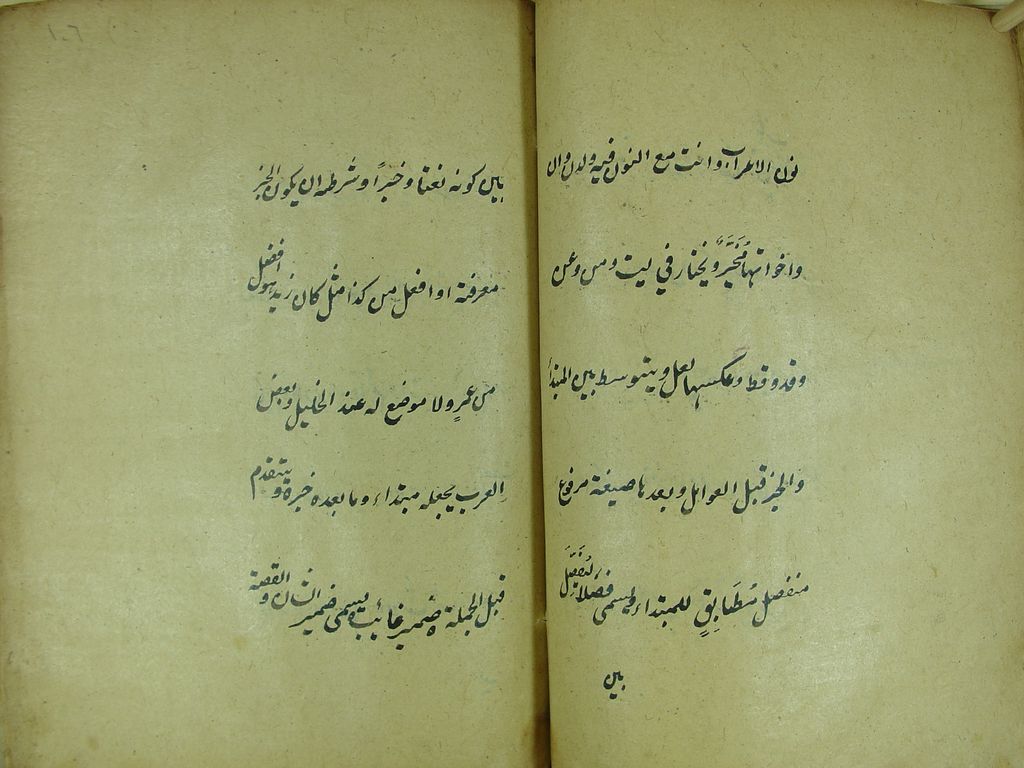 نون الاعراب وانت مع النون فيه ولدن وان
واخواتها مُخَيَّرٌ ويختار في ليت ومن وعن
وقد وقط وعكسها لعل ويتوسط بين المبتدأ
والخبر قبل العوامل وبعدها صيغة مرفوع
منفصل مُطَابِقٍ للمبتداء ويسمى فصلا لِيُفَصِّلَ
بين
بين كونه نعتا وخبرًا وشرطه ان يكون الخبر
معرفة او افعل من كذا مثل كان زيد هو افضل
من عمرٍو ولا موضع له عند الخليل وبعض
العرب يجعله مبتداء وما بعده خبره ويتقدم
قبل الجملة ضمير غائب يسمى ضمير الشان والقصة
١٠٦